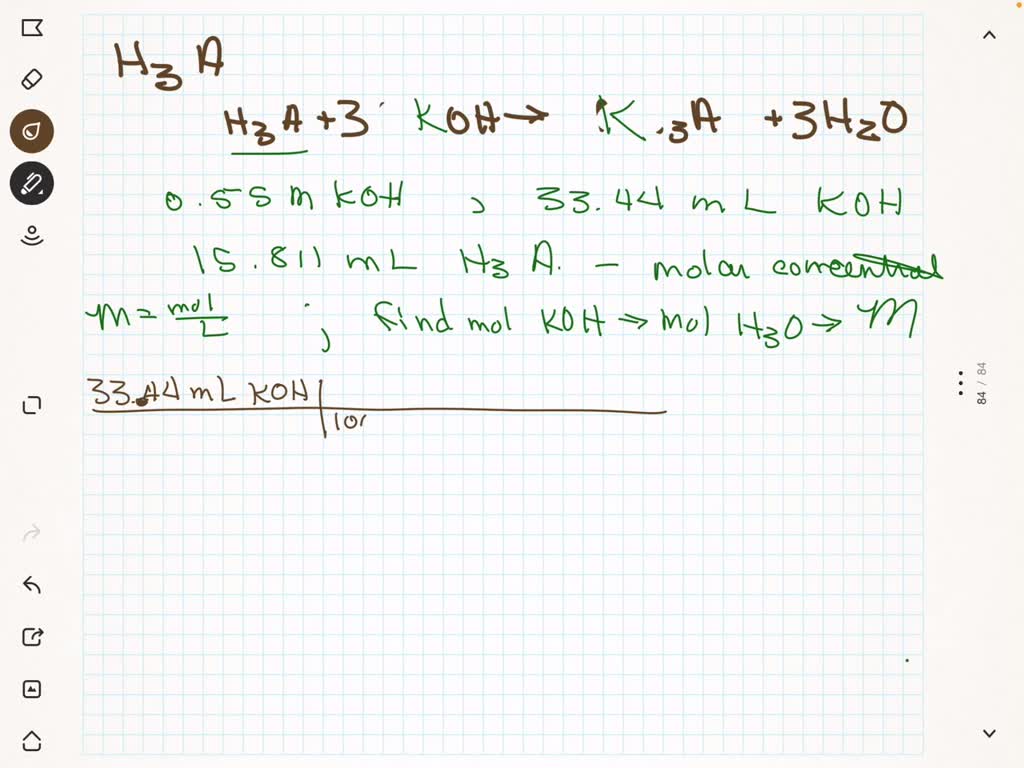 H₃A
H₃A + 3 KOH → K₃A + 3H₂O
0.55 M KOH , 33.44 mL KOH
15.811 mL H₃A. - molar
M = mol/L ; find mol KOH ⇒ mol H₃O ⇒ M
33.44 mL KOH
10
84 / 84